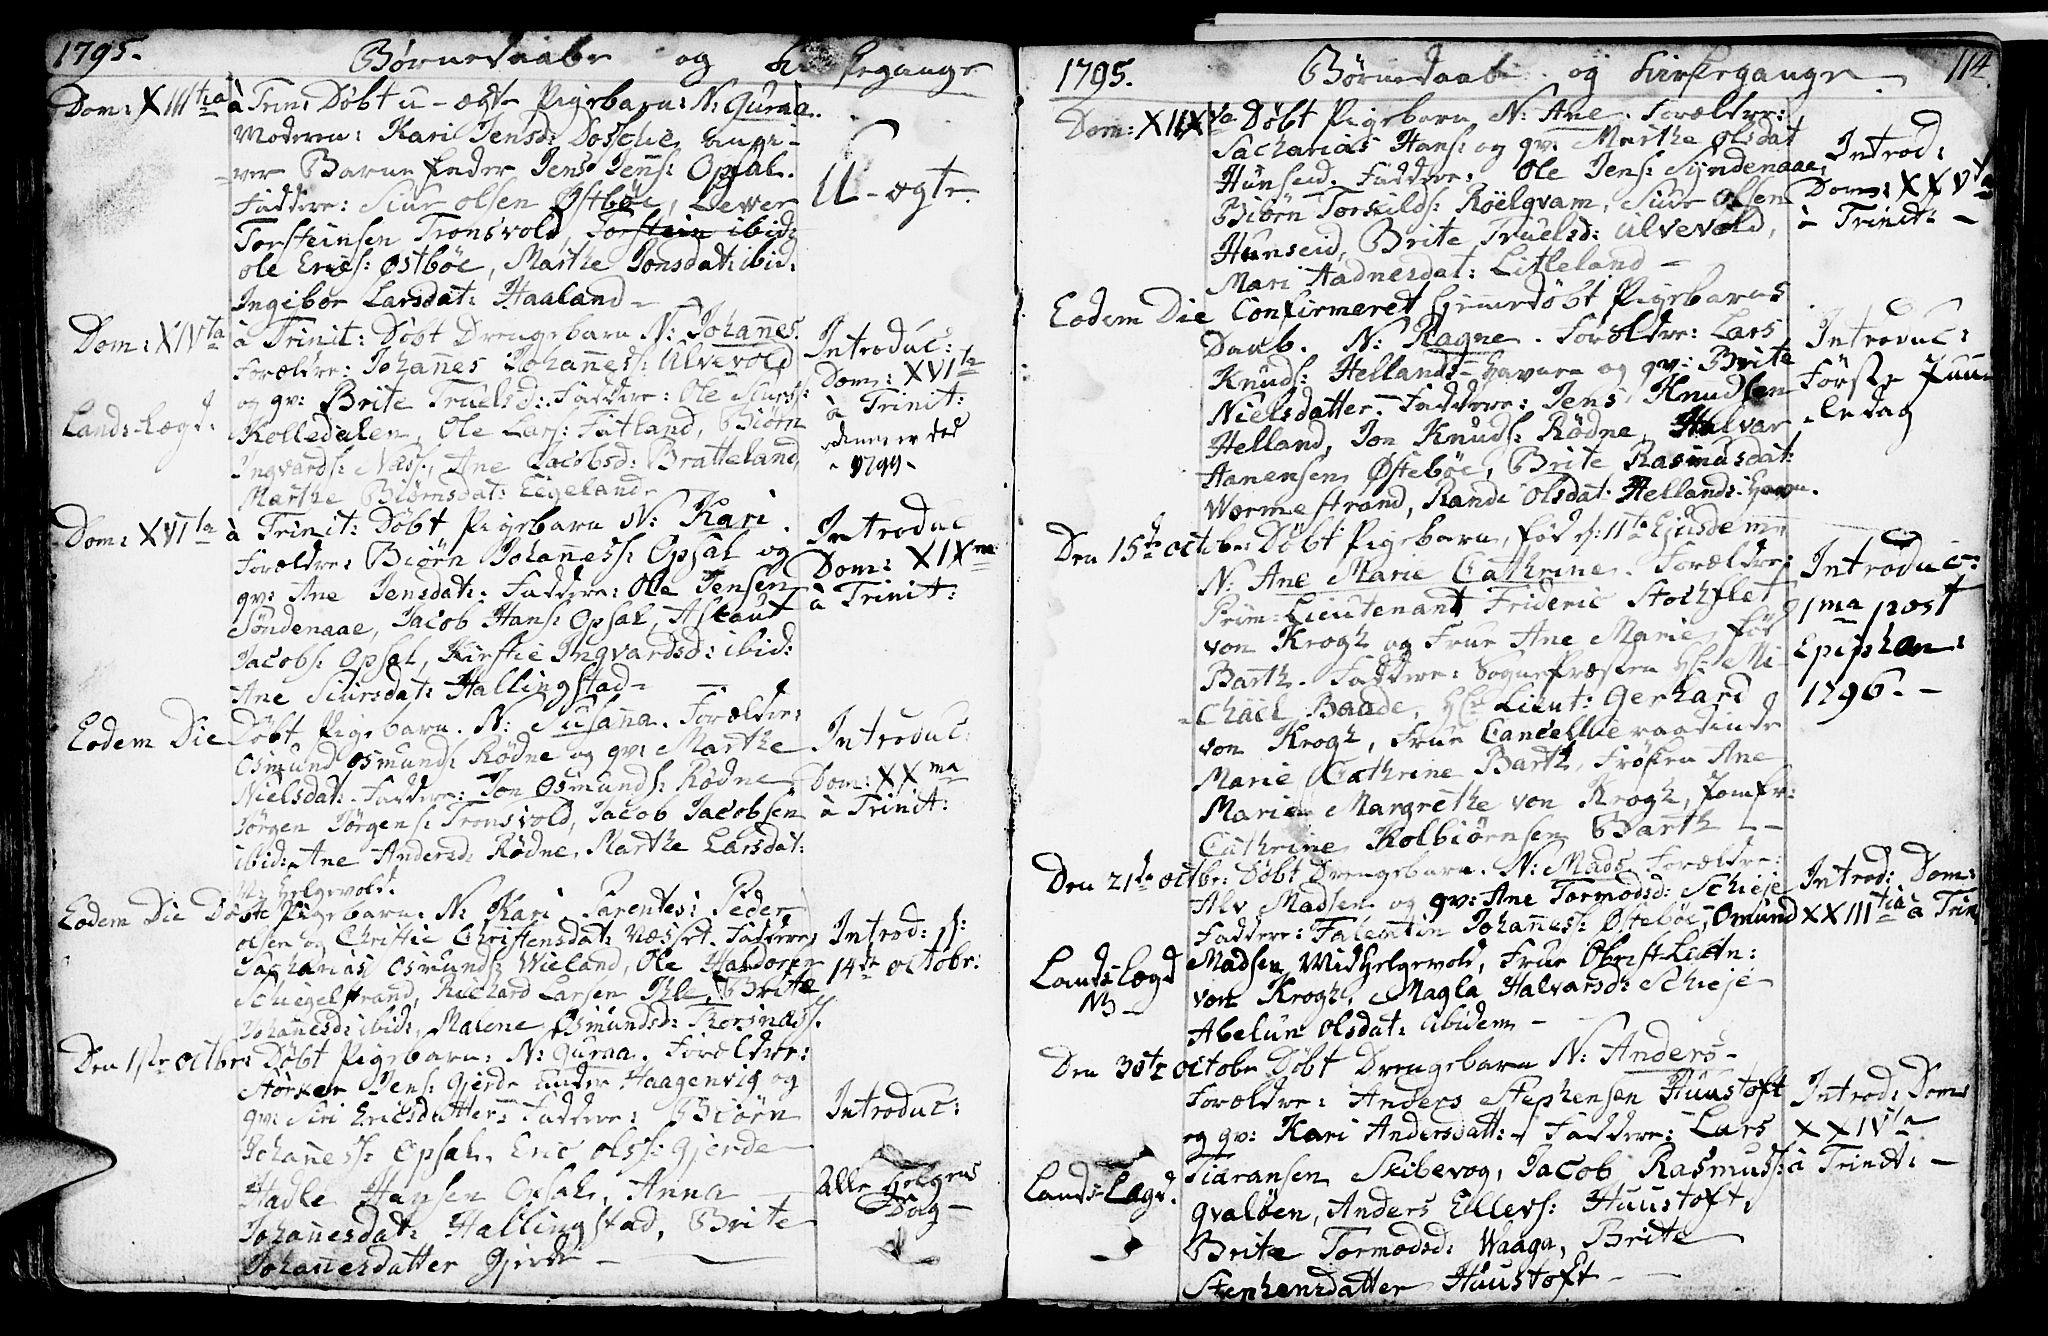 1795. Børnedaab og Kirkegange
Dom: XIIItia à Trin: Døbt u-ægte Pigebarn: N: Guraa.
Moderen: Kari Jensd: Dosche angi-
ver Barnefader Jens Jens: Opsal.
Faddere: Siur olsen Østbøe, Lewer
Torsteinsen Tronsvold, Torstein ibid:
ole Erics: Østbøe, Marthe Jonsdat: ibid:
Ingebor Larsdat: Haaland -
U-ægte
Dom: XIVta à Trinit: Døbt Drengebarn N: Johañes.
Forældre: Johañes Johañess: Ulvevold
og qv: Brite Truelsd: Faddere: Ole Siurs:
Lands-Lægd: Kolledalen, Ole Lars: Fatland, Biørn
Ingvards: Næss, Ane Jacobsd: Bratteland,
Marthe Biørnsdat: Eigeland
Introduc:
Dom: XVIta
à Trinit:
denne er død
1799-
Dom: XVIta à Trinit: Døbt Pigebarn N: Kari.
Forældre: Biørn Johañess: Opsal og
qv: Ane Jensdat: Faddere: Ole Jensen
Søndenaae, Jacob Hans: Opsal, Aslaut
Jacobs: Opsal, Kirstie Ingvardsd: ibid:
Ane Siursdat: Hallingstad -
Introduc
Dom: XIXma
à Trinit:
Eodem Die Døbt Pigebarn. N: Susaña. Forældre:
Osmund Osmunds: Rødne og qv: Marthe
Nielsdat: Faddere: Jon Osmunds: Rødne
Jørgen Jørgens: Tronsvold, Jacob Jacobsen
ibid: Ane Andersd: Rødne, Marthe Larsdat:
Helgevold.
Introduc:
Dom: XXma
à Trinit:
Eodem Die Døbt Pigebarn: N: Kari Parentes: Peder
olsen og Christie Christensdat: Næsset. Faddere:
Sacharias Osmunds: Wieland, Ole Haldorsen
Schiegelstrand, Richard Larsen Øle, Brite
Johañesd: ibid:, Malene Osmundsd: Thorsnæss.
Introd: d:
14de octobr:
Den 1ste octbr: Døbt Pigebarn: N: Guraa. Forældre:
Størker Mons: Gjerde under Haagenvig og
qv: Siri Ericsdatter: Faddere: Biørn
Johañess: Opsal, Eric olss: Gjerde
Hadle Hansen Opsal, Anna
Johañesdat: Hallingstad, Brite
Johañesdatter Gjerde -
Introduc:
Alle Helgens
Dag -
1795. Børnedaab og Kirkegange. 114
Dom: XIIXva Døbt Pigebarn N: Ane. Forældre:
Sacharias Hans: og qv: Marthe Olsdat
Hunseid. Faddere: Ole Jens: Syndenaae,
Biørn Torkilds: Røelqvam, Siur Olsen
Hunseid, Brite Truelsd: Ulvevold,
Mari Aadnesdat: Litleland -
Introd:
Dom: XXVta
à Trinit: -
Eodem Die Confirmeret Hjemmedøbt Pigebarns
Daab. N: Ragne. Forældre: Lars
Knuds: Hellands-Havnen og qv: Brite
Nielsdatter. Faddere: Jens Knudsen
Helland, Jon Knuds: Rødne, Halvar
Hanensen Østebøe, Brite Rasmusdat:
Wormestrand, Rande Olsdat: Hellands-Havn.
Introduc:
Første Juu-
-ledag
Den 15de octbr: Døbt Pigebarn, fød d: 11te Ejusdem
N: Ane Marie Cathrine. Forældre:
Prim-Lieutenant Frideric Stochflet
von Krogh og Frue Ane Marie, fød
Barth. Faddere: Sognepræsten Hr: Mi-
-chael Baade, Hr: Lieut: Gerhard
von Krogh, Frue Cancellieraadinde
Marie Cathrine Barth, Frøken Ane
Marie Margrethe von Krogh, Jomfr:
Cathrine Kolbiørnsen Barth -
Introduc:
1ma post
Epiphan:
1796. -
Den 21de octbr: Døbt Drengebarn. N: Mads. Forældre:
Alv Madsen og qv: Ane Tormodsd: Schieje
Faddere: Falentin Johañess: Østebøe, Omund
Lands-Lægd Madsen Wid Helgevold, Frue Obrist-Leutn:
N3 - von Krogh, Magla Halvarsd: Schieje
Abelun Olsdat: ibidem -
Introd: Dom:
XXIIItia à Trin
Den 30te octobr Døbt Drengebarn N: Anders -
Forældre: Anders Stephensen Huustoft
og qv: Kari Andersdatt: Faddere: Lars
Lands-Lægd. Tiaransen Skibevog, Jacob Rasmuss:
Qvaløen, Anders Ellevs: Huustoft,
Brite Tormodsd: Waaga, Brite
Stephensdatter Huustoft -
Introd: Dom:
XXIVta
à Trinit: -